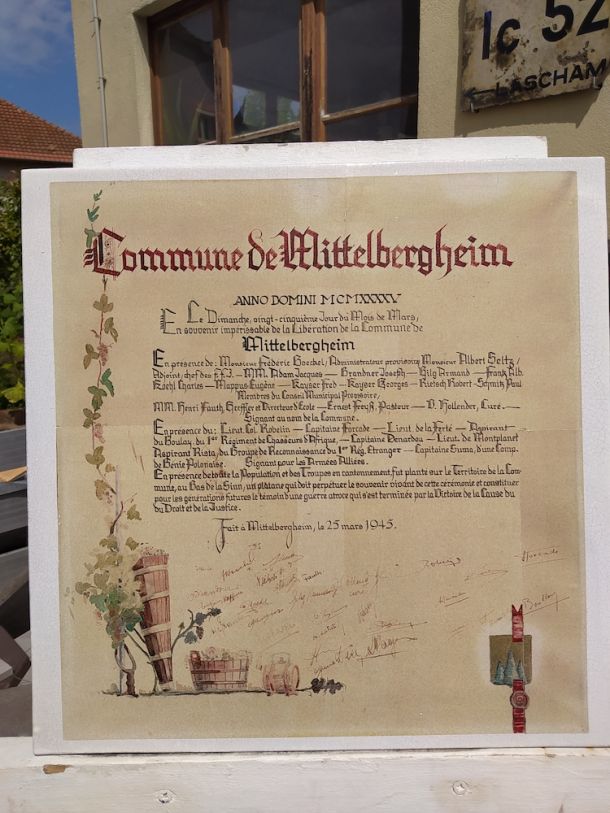 Ic 52
LASCHAM
Commune de Mittelbergheim
ANNO DOMINI MCMXXXXV
Le Dimanche, vingt-cinquième Jour du Mois de Mars,
En souvenir impérissable de la Libération de la Commune de
Mittelbergheim
En présence de: Monsieur Frédéric Boeckel, Administrateur provisoire, Monsieur Albert Seltz,
Adjoint, chef des F.F.I. — MM. Adam Jacques — Brandner Joseph — Gilg Armand — Frantz Alb.
Koehl Charles — Mappus Eugène — Kayser Fred — Kayser Georges — Rietsch Robert — Schmitz Paul
Membres du Conseil Municipal Provisoire,
MM. Henri Fauth, Greffier et Directeur d'École — Ernest Freyss, Pasteur — V. Hollender, Curé. —
Signant au nom de la Commune.
En présence du: Lieut. Col. Robelin — Capitaine Forcade — Lieut. de la Ferté — Aspirant
du Boulay, du 1er Régiment de Chasseurs d'Afrique, — Capitaine Denardou — Lieut. de Montplanet
Aspirant Rista, du Groupe de Reconnaissance du 1er Rég. Étranger — Capitaine Suma, d'une Comp.
de Génie Polonaise. Signant pour les Armées Alliées.
En présence de toute la Population et des Troupes en cantonnement, fut planté sur le Territoire de la Com-
mune, au Bas de la Sinn, un platane qui doit perpétuer le souvenir vivant de cette cérémonie et constituer
pour les générations futures le témoin d'une guerre atroce qui s'est terminée par la Victoire de la Cause du
du Droit et de la Justice.
Fait à Mittelbergheim, le 25 mars 1945.